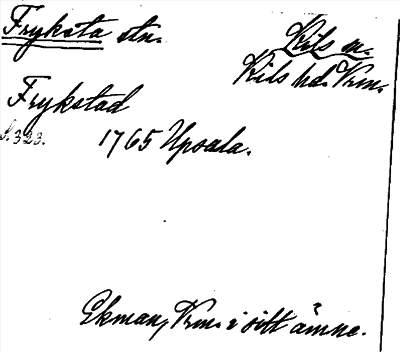 Fryksta stn.
Kils sn.
Kils hd. Vrm.
Frykstad
S. 323. 1765 Upsala.
Ekman, Vrm. i sitt ämne.